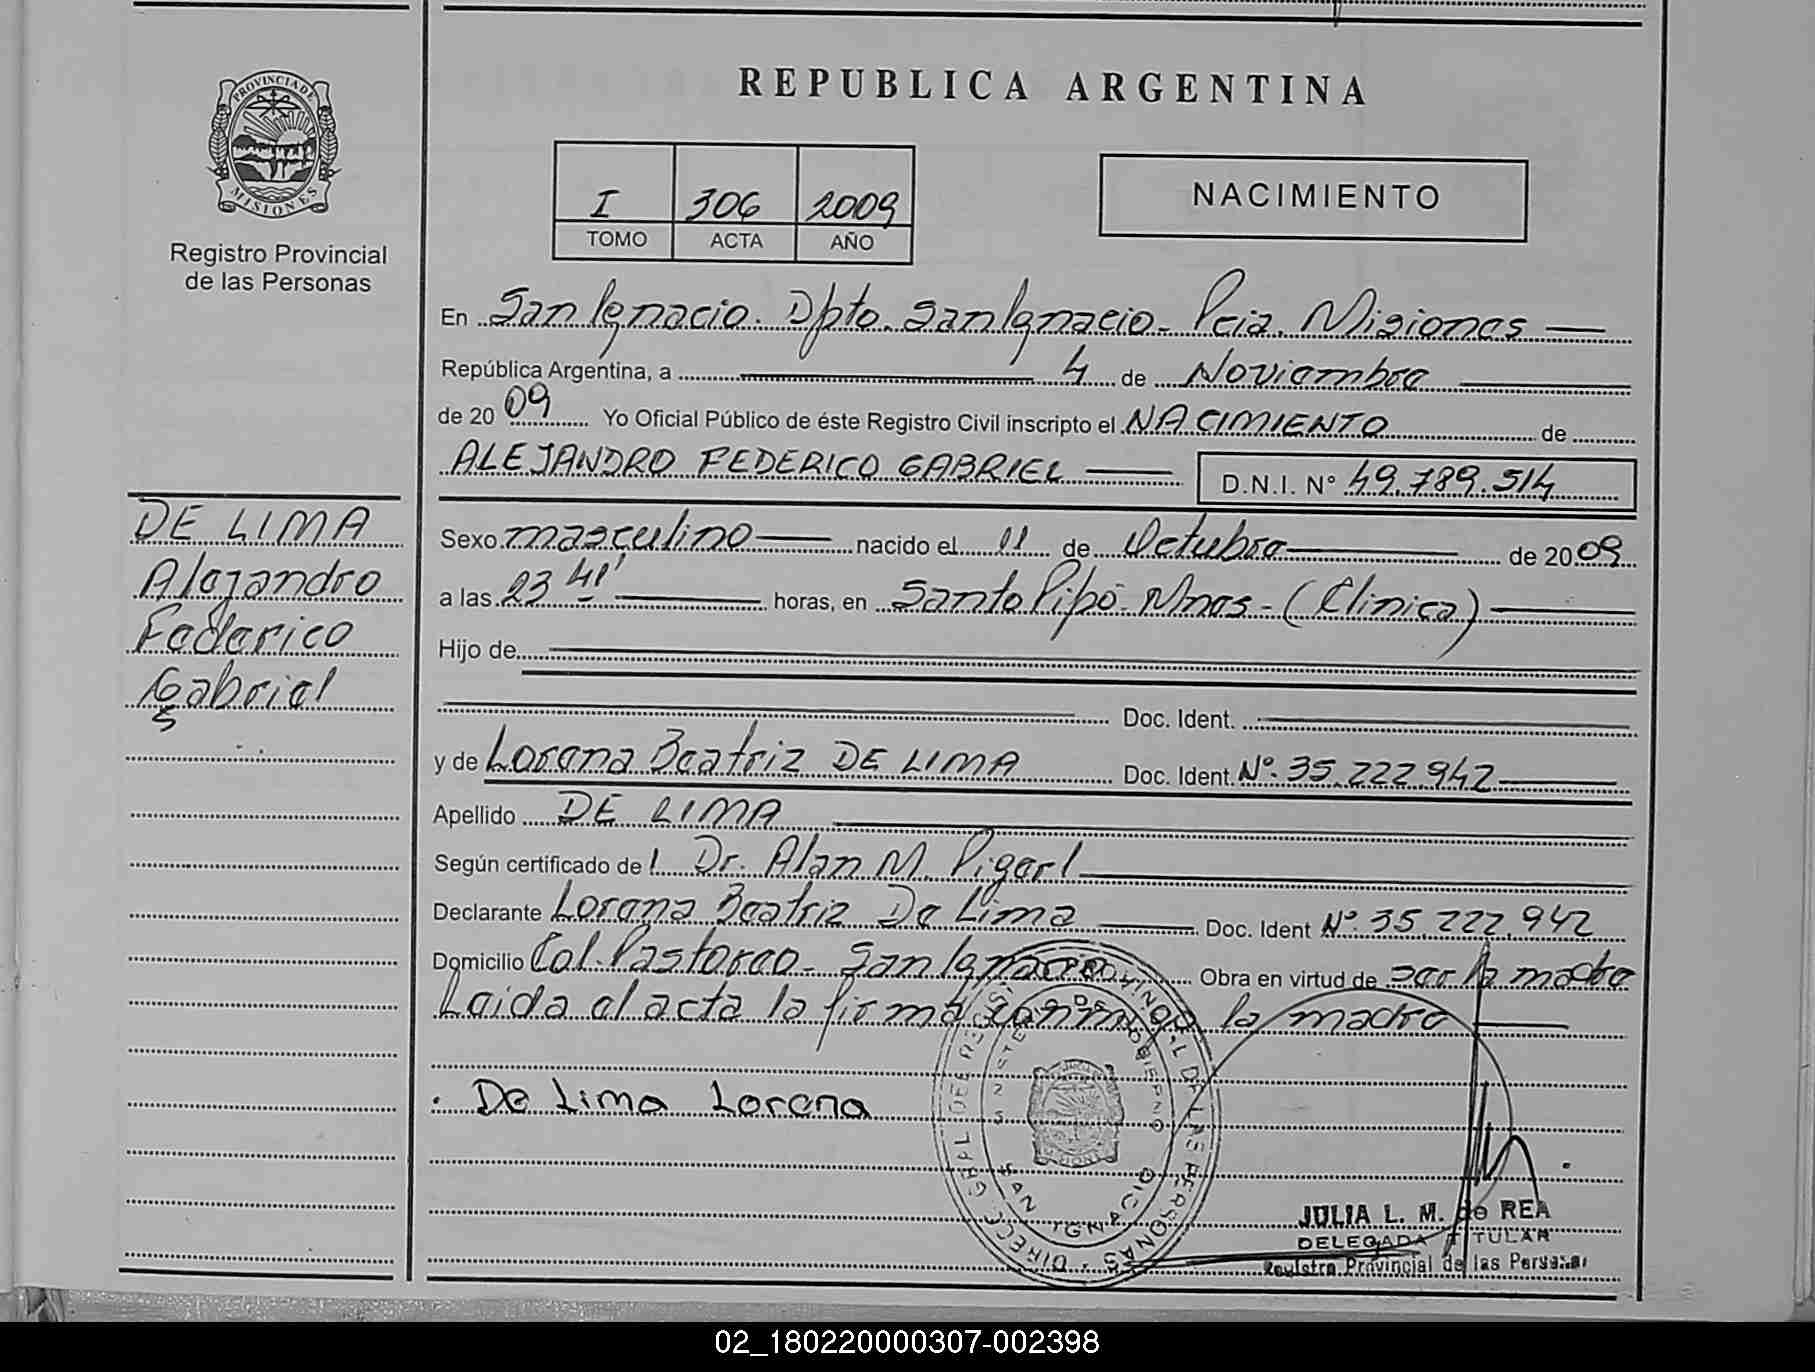 REPUBLICA ARGENTINA
PROVINCIA DE
MISIONES
Registro Provincial
de las Personas
I 306 2009
TOMO ACTA AÑO
NACIMIENTO
En San Ignacio. Dpto. San Ignacio - Pcia. Misiones
República Argentina, a 4 de Noviembre
de 2009 Yo Oficial Público de éste Registro Civil inscripto el NACIMIENTO de
ALEJANDRO FEDERICO GABRIEL D.N.I. N° 49.789.514
DE LIMA
Alejandro
Federico
Gabriel
Sexo masculino nacido el 11 de Octubre de 2009
a las 23 41' horas, en Santo Pipó - Mnes - (Clinica)
Hijo de
Doc. Ident.
y de Lorena Beatriz DE LIMA Doc. Ident. N°. 35.222.942
Apellido DE LIMA
Según certificado de l Dr. Alan M.
Declarante Lorena Beatriz De Lima Doc. Ident N°. 35.222.942
Domicilio Col. Pastoreo - San Ignacio Obra en virtud de ser la madre
Leida el acta la firma conmigo la madre
De Lima Lorena
DIRECC. GRAL DEL REGISTRO PROVINCIAL DE LAS PERSONAS
SAN IGNACIO
JULIA L. M. de REA
DELEGADA TITULAR
Registro Provincial de las Personas
02_180220000307-002398